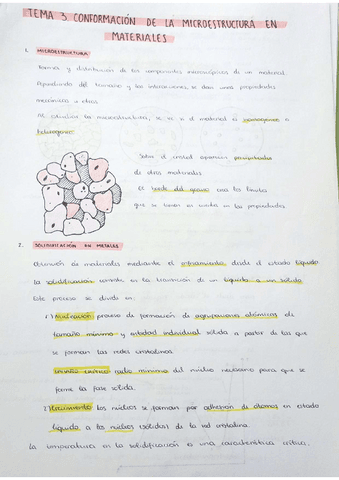 TEMA 3. CONFORMACIÓN DE LA MICROESTRUCTURA EN
MATERIALES
1. MICROESTRUCTURA
Forma y distribución de los componentes microscópicos de un material.
Dependiendo del tamaño y las interacciones, se dan unas propiedades
mecánicas u otras.
Al estudiar la microestructura, se ve si el material es homogéneo o
heterogéneo.
Sobre el cristal aparecen
de otros materiales.
El borde del grano crea los límites
que se tienen en cuenta en las propiedades.
2. SOLIDIFICACIÓN EN METALES
Obtención de materiales mediante el enfriamiento desde el estado líquido.
La solidificación consiste en la transición de un líquido a un sólido.
Este proceso se divide en:
1) Nucleación: proceso de formación de agrupaciones atómicas de
tamaño mínimo y entidad individual sólida a partir de las que
se forman las redes cristalinas.
radio mínimo del núcleo necesario para que se
forme la fase sólida.
2) Crecimiento: los núcleos se forman por adhesión de átomos en estado
líquido a los núcleos sólidos de la red cristalina.
La temperatura en la solidificación es una característica crítica.